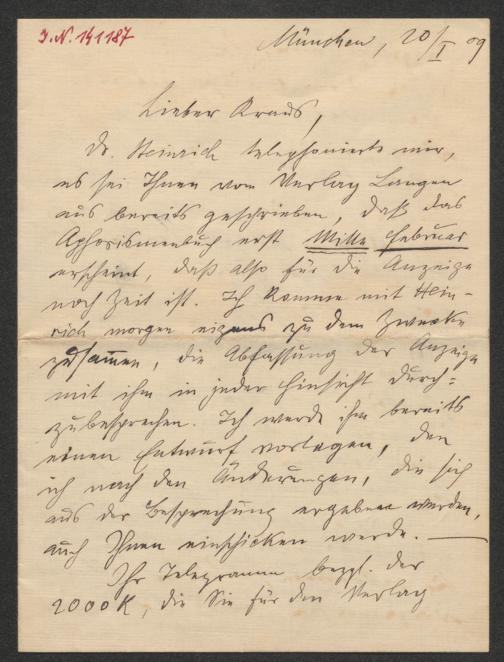 J.N. 141187
München, 20/I 09
Lieber Kraus,
Dr. Heinrich telephonierte mir,
es sei Ihnen vom Verlag Langen
aus bereits geschrieben, daß das
Aphorismenbuch erst Mitte Februar
erscheint, daß also für die Anzeige
noch Zeit ist. Ich komme mit Hein-
rich morgen eigens zu dem Zwecke
zusammen, die Abfassung der Anzeige
mit ihm in jeder Hinsicht durch-
zubesprechen. Ich werde ihm bereits
einen Entwurf vorlegen, den
ich nach den Änderungen, die sich
aus der Besprechung ergeben werden,
auch Ihnen einschicken werde. —
Ihr Telegramm bezgl. der
2000 K, die Sie für den Verlag